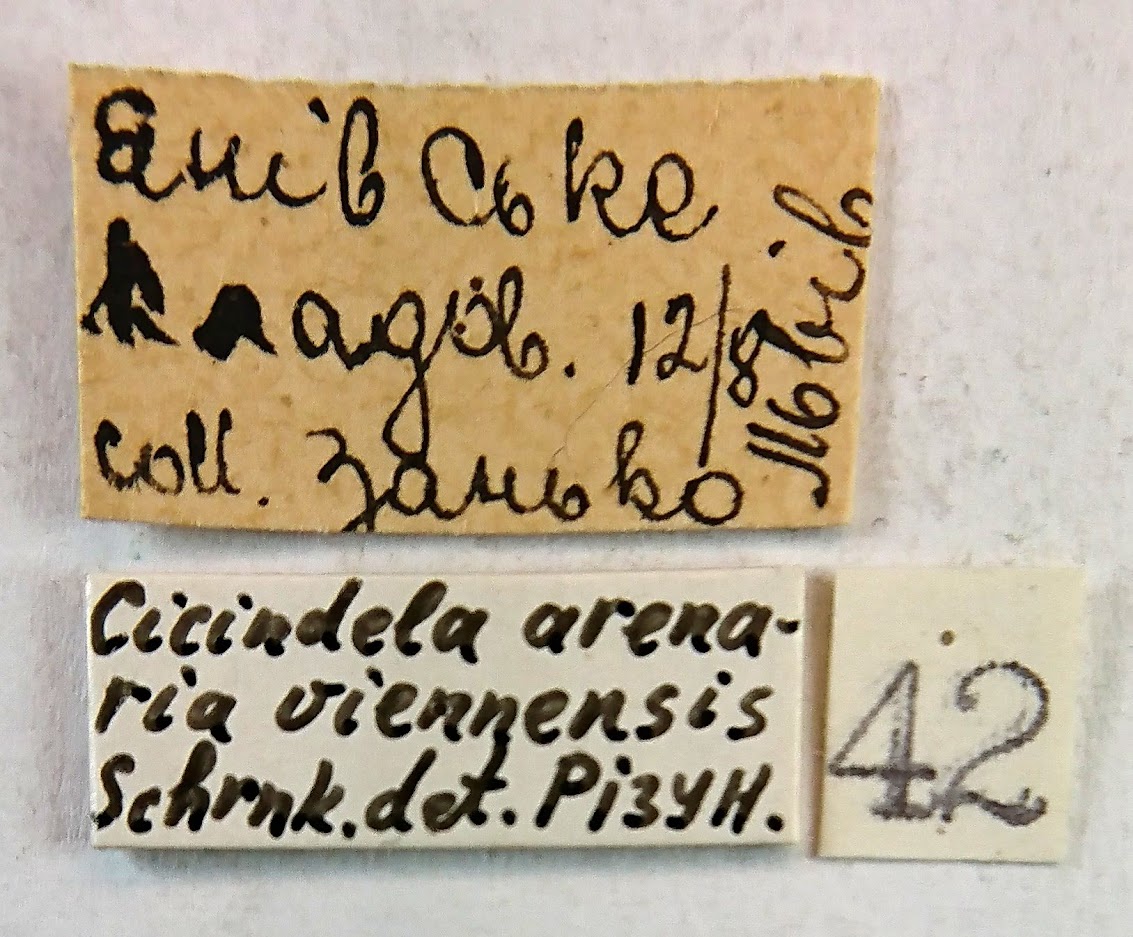 Янівське
Кладов. 12/8
coll. Занько
Львів
Cicindela arena-
ria viennensis
Schrnk. det. Різун.
42